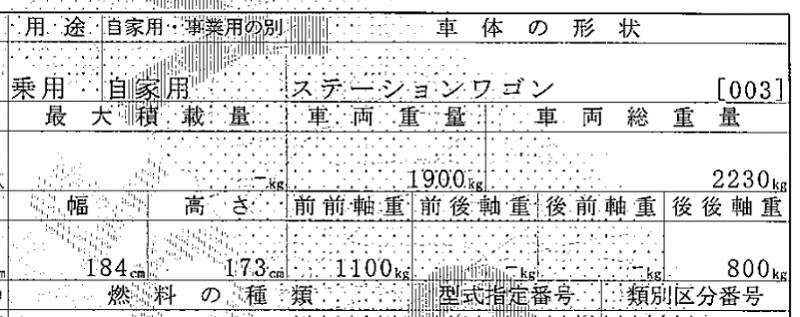 用途 自家用・事業用の別 車体の形状
乗用 自家用 ステーションワゴン [003]
最大積載量 車両重量 車両総重量
-kg 1900kg 2230kg
幅 高さ 前前軸重 前後軸重 後前軸重 後後軸重
184cm 173cm 1100kg -kg -kg 800kg
燃料の種類 型式指定番号 類別区分番号